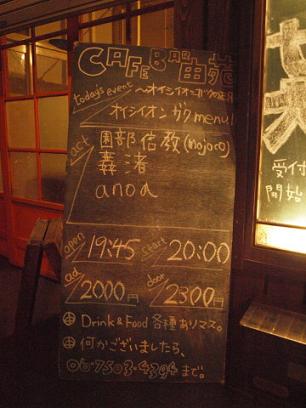 CAFE BAR 由苑
today's event
〜オイシイオンガクの
オイシイオンガクmenu!
act
園部信教(mojoco)
轟渚
anoa
open 19:45
start 20:00
ad 2000円
door 2300円
Drink & Food 各種ありマス。
何かございましたら、
06-7503-4394まで。
受付
開始